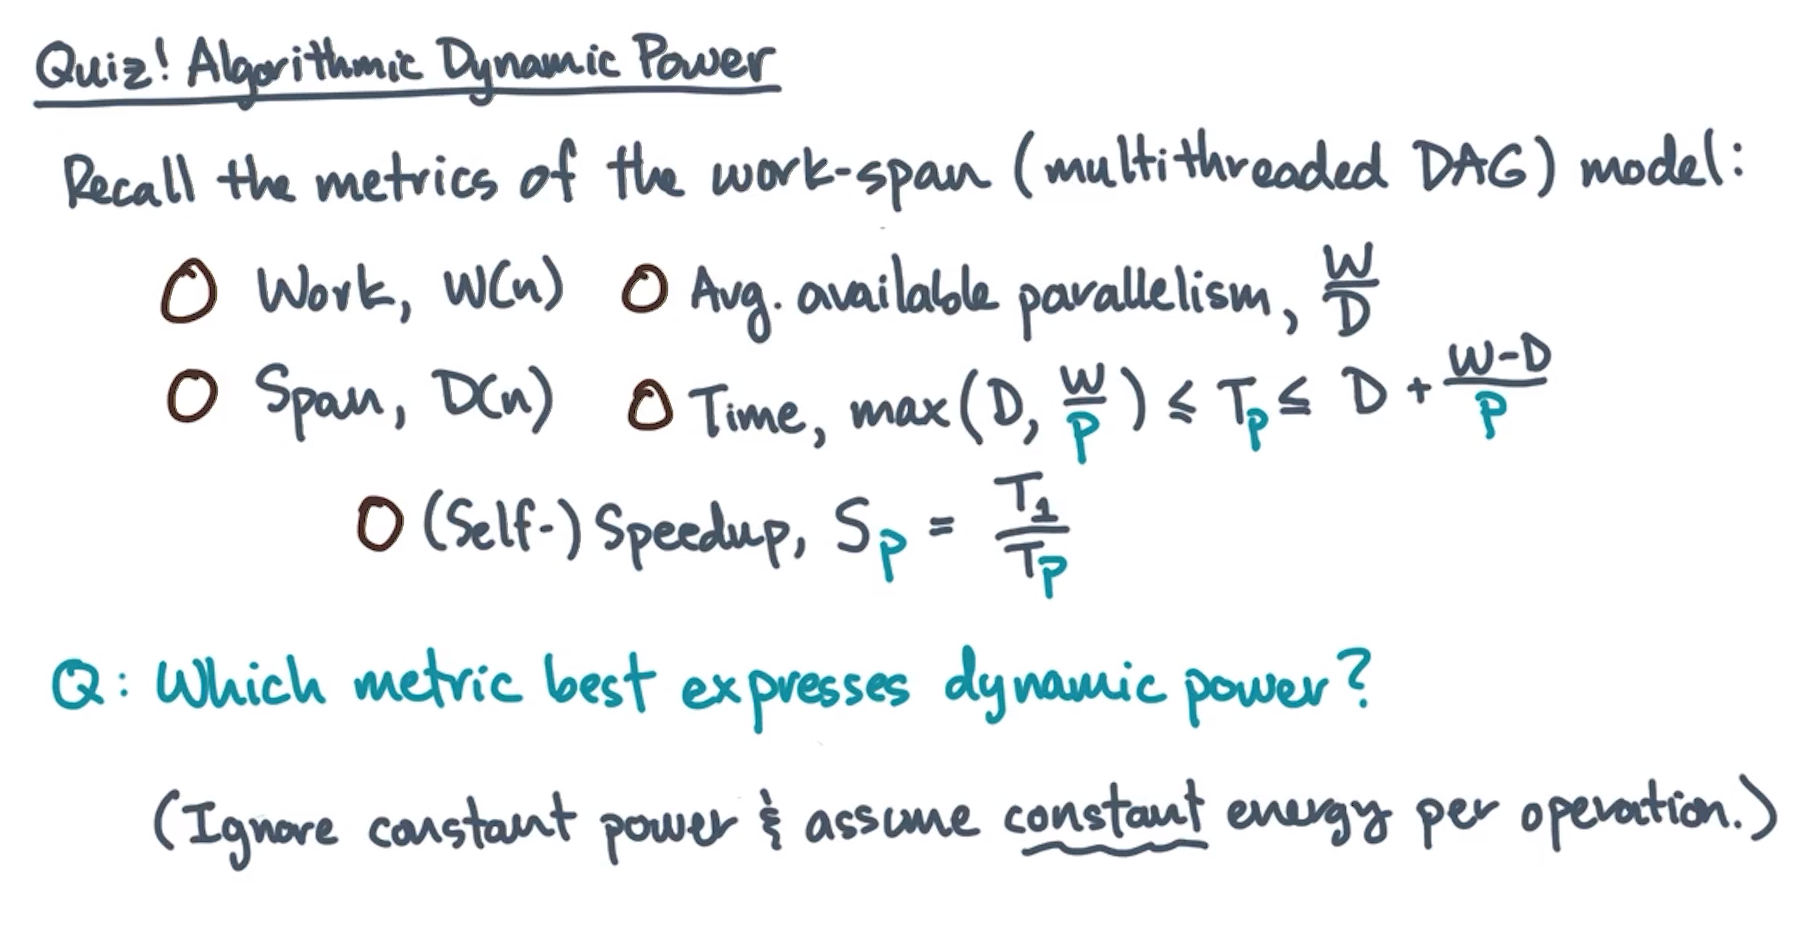 Quiz! Algorithmic Dynamic Power
Recall the metrics of the work-span (multithreaded DAG) model:
O Work, W(n) O Avg. available parallelism, W/D
O Span, D(n) O Time, max(D, W/P) ≤ T_P ≤ D + (W-D)/P
O (Self-) Speedup, S_P = T_1/T_P
Q: Which metric best expresses dynamic power?
(Ignore constant power & assume constant energy per operation.)